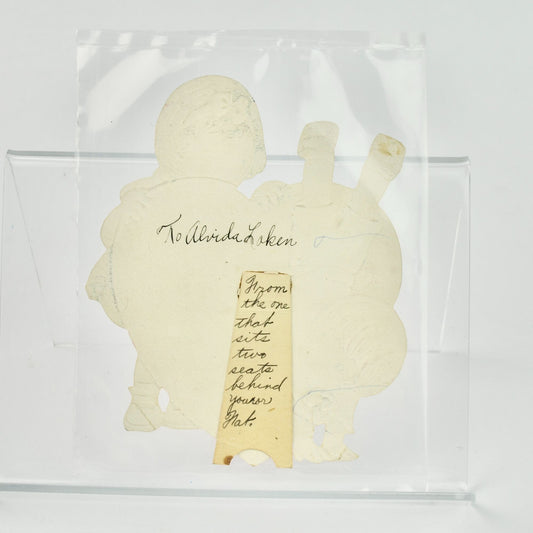 To Alvida Loken
From
the one
that
sits
two
seats
behind
your or
Nat.